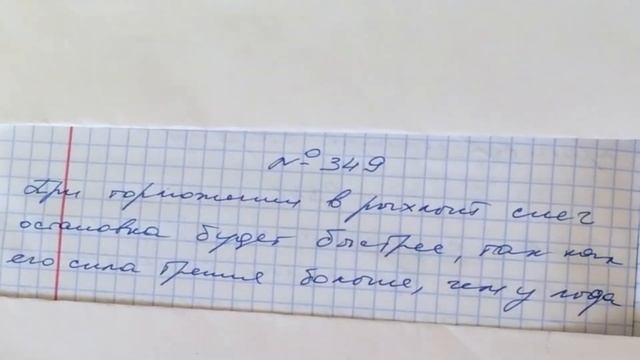 № 349
При торможении в рыхлый снег
остановка будет быстрее, так как
его сила трения больше, чем у льда